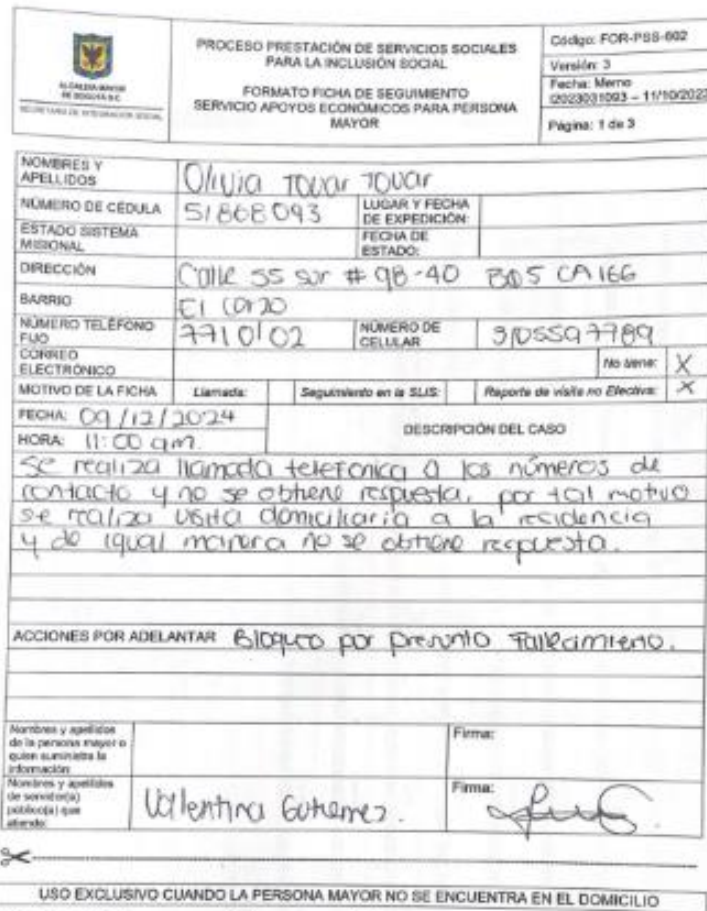 ALCALDÍA MAYOR
DE BOGOTÁ D.C.
SECRETARÍA DE INTEGRACIÓN SOCIAL
PROCESO PRESTACIÓN DE SERVICIOS SOCIALES
PARA LA INCLUSIÓN SOCIAL
FORMATO FICHA DE SEGUIMIENTO
SERVICIO APOYOS ECONÓMICOS PARA PERSONA
MAYOR
Código: FOR-PSS-602
Versión: 3
Fecha: Memo
I2023031093 – 11/10/2023
Página: 1 de 3
NOMBRES Y
APELLIDOS
Olivia Tovar Tovar
NÚMERO DE CÉDULA 51868093 LUGAR Y FECHA
DE EXPEDICIÓN:
ESTADO SISTEMA
MISIONAL
FECHA DE
ESTADO:
DIRECCIÓN Calle 55 sur # 98-40 BQ5 CA 166
BARRIO El corzo
NÚMERO TELÉFONO
FIJO
7710102 NÚMERO DE
CELULAR
3105597789
CORREO
ELECTRÓNICO
No tiene: X
MOTIVO DE LA FICHA Llamada: Seguimiento en la SLIS: Reporte de visita no Efectiva: X
FECHA: 09/12/2024
HORA: 11:00 am.
DESCRIPCIÓN DEL CASO
Se realiza llamada telefonica a los números de
contacto y no se obtiene respuesta, por tal motivo
se realiza visita domiciliaria a la residencia
y de igual manera no se obtiene respuesta.
ACCIONES POR ADELANTAR Bloqueo por presunto Fallecimiento.
Nombres y apellidos
de la persona mayor o
quien suministra la
información:
Firma:
Nombres y apellidos
de servidor(a)
público(a) que
atiende:
Vallentina Gutierrez.
Firma:
USO EXCLUSIVO CUANDO LA PERSONA MAYOR NO SE ENCUENTRA EN EL DOMICILIO